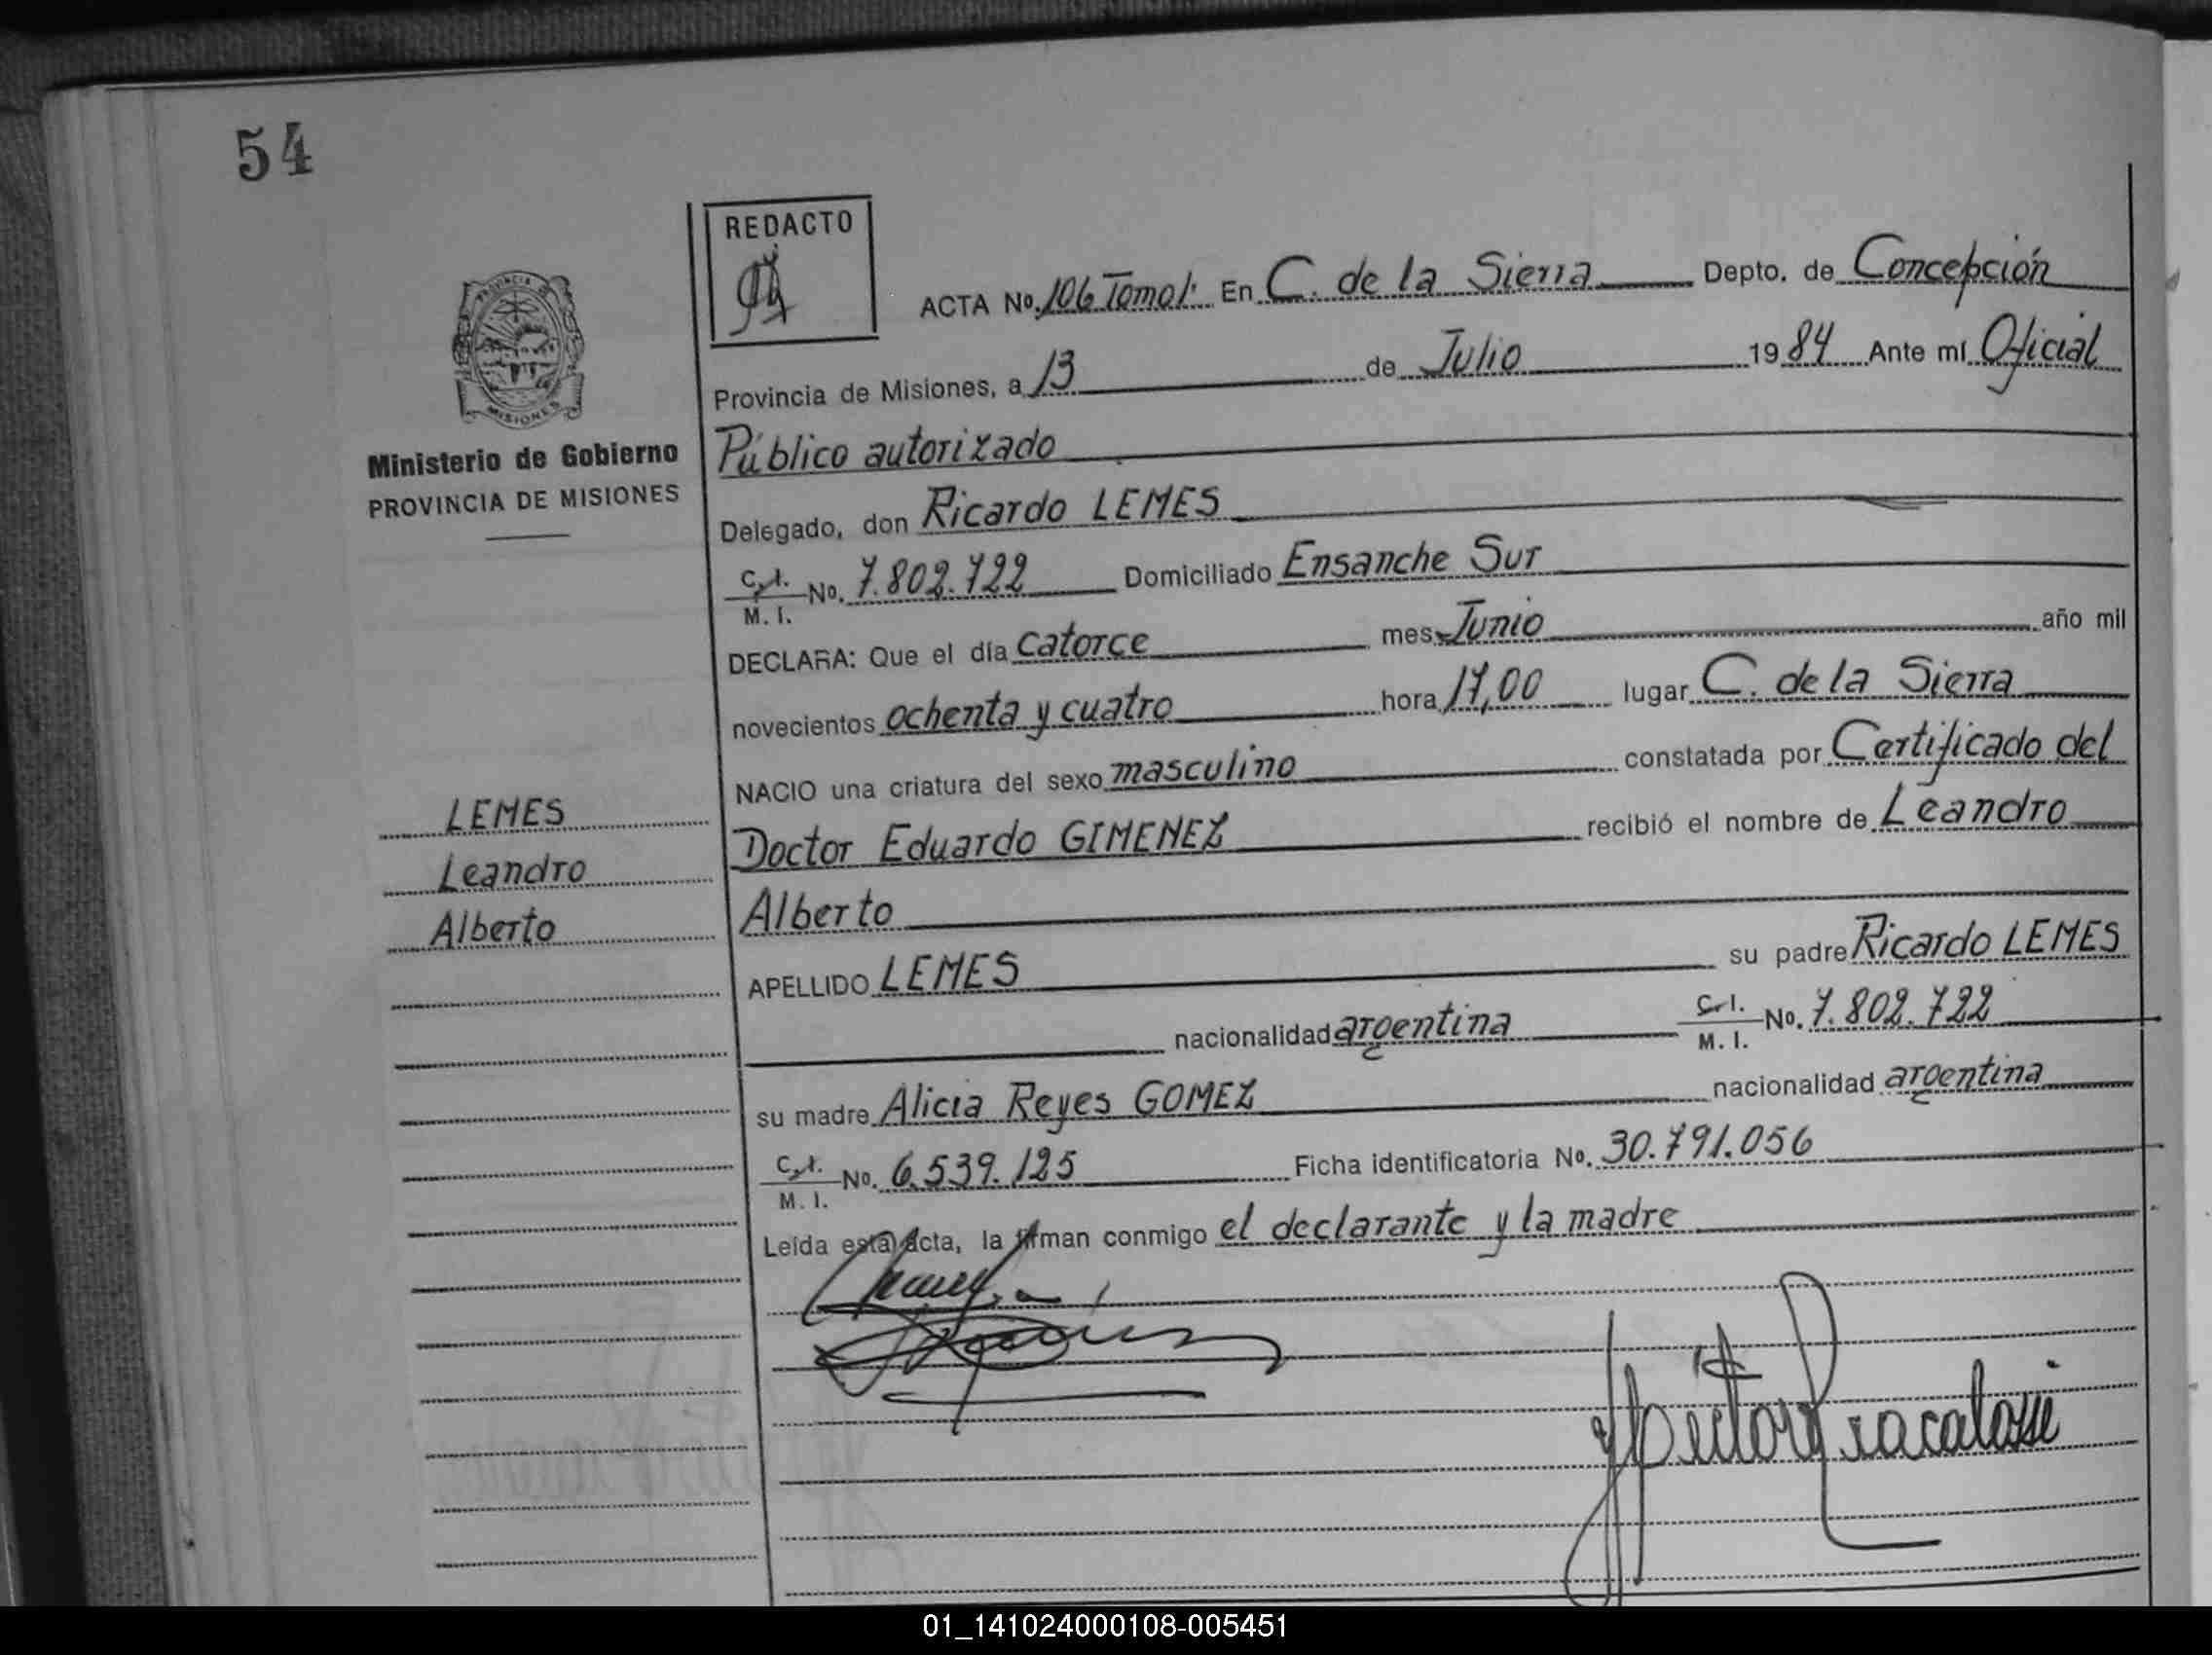 54
REDACTO
ACTA No. 106 Tomo 1º En C. de la Sierra Depto. de Concepción
Provincia de Misiones, a 13 de Julio 1984 Ante mí Oficial
PROVINCIA DE
MISIONES
Ministerio de Gobierno
PROVINCIA DE MISIONES
Público autorizado
Delegado, don Ricardo LEMES
C. I. / M. I. No. 7.802.722 Domiciliado Ensanche Sur
DECLARA: Que el día catorce mes Junio año mil
novecientos ochenta y cuatro hora 17,00 lugar C. de la Sierra
NACIO una criatura del sexo masculino constatada por Certificado del
LEMES
Doctor Eduardo GIMENEZ recibió el nombre de Leandro
Leandro
Alberto
Alberto
APELLIDO LEMES su padre Ricardo LEMES
nacionalidad argentina C. I. / M. I. No. 7.802.722
su madre Alicia Reyes GOMEZ nacionalidad argentina
C. I. / M. I. No. 6.539.125 Ficha identificatoria No. 30.791.056
Leída esta acta, la firman conmigo el declarante y la madre
01_141024000108-005451